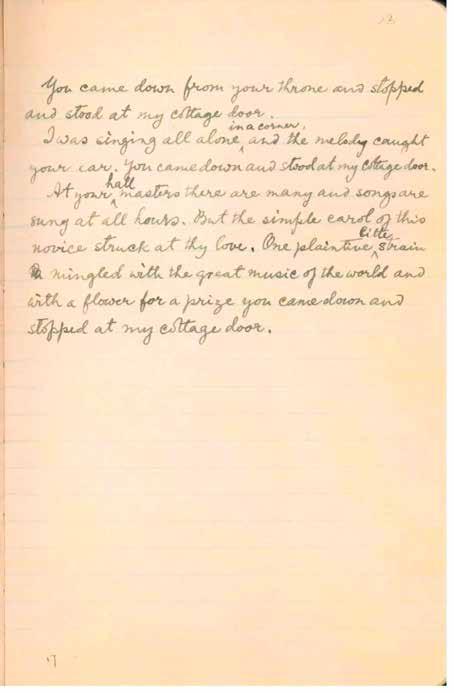 13
You came down from your throne and stopped
and stood at my cottage door.
I was singing all alone in a corner, and the melody caught
your ear. You came down and stood at my cottage door.
At your hall masters there are many and songs are
sung at all hours. But the simple carol of this
novice struck at thy love. One plaintive little strain
mingled with the great music of the world and
with a flower for a prize you came down and
stopped at my cottage door.
17